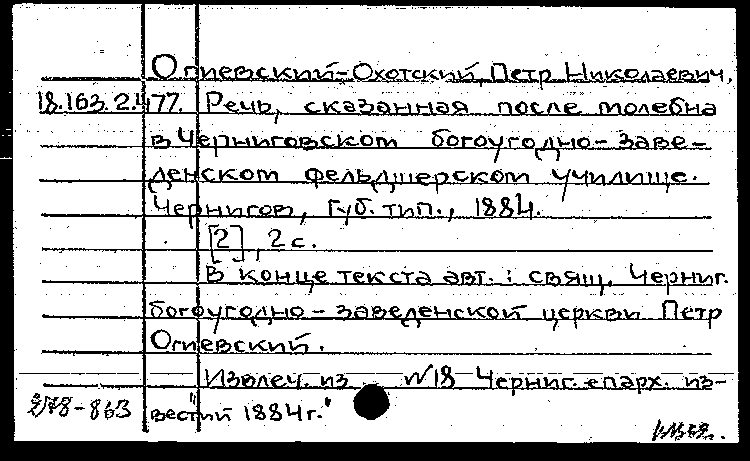 Огиевский-Охотский, Петр Николаевич.
18.163.2.477. Речь, сказанная после молебна
в Черниговском богоугодно-заве-
денском фельдшерском училище.
Чернигов, Губ. тип., 1884.
[2], 2 с.
В конце текста авт.: свящ. Черниг.
богоугодно-заведенской церкви Петр
Огиевский.
Извлеч. из №18 "Черниг. епарх. из-
вестий 1884г."
278-863